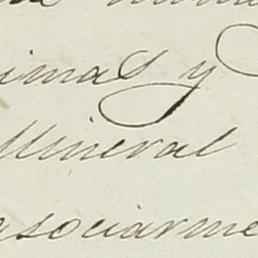 imas y
Mineral
asociarme